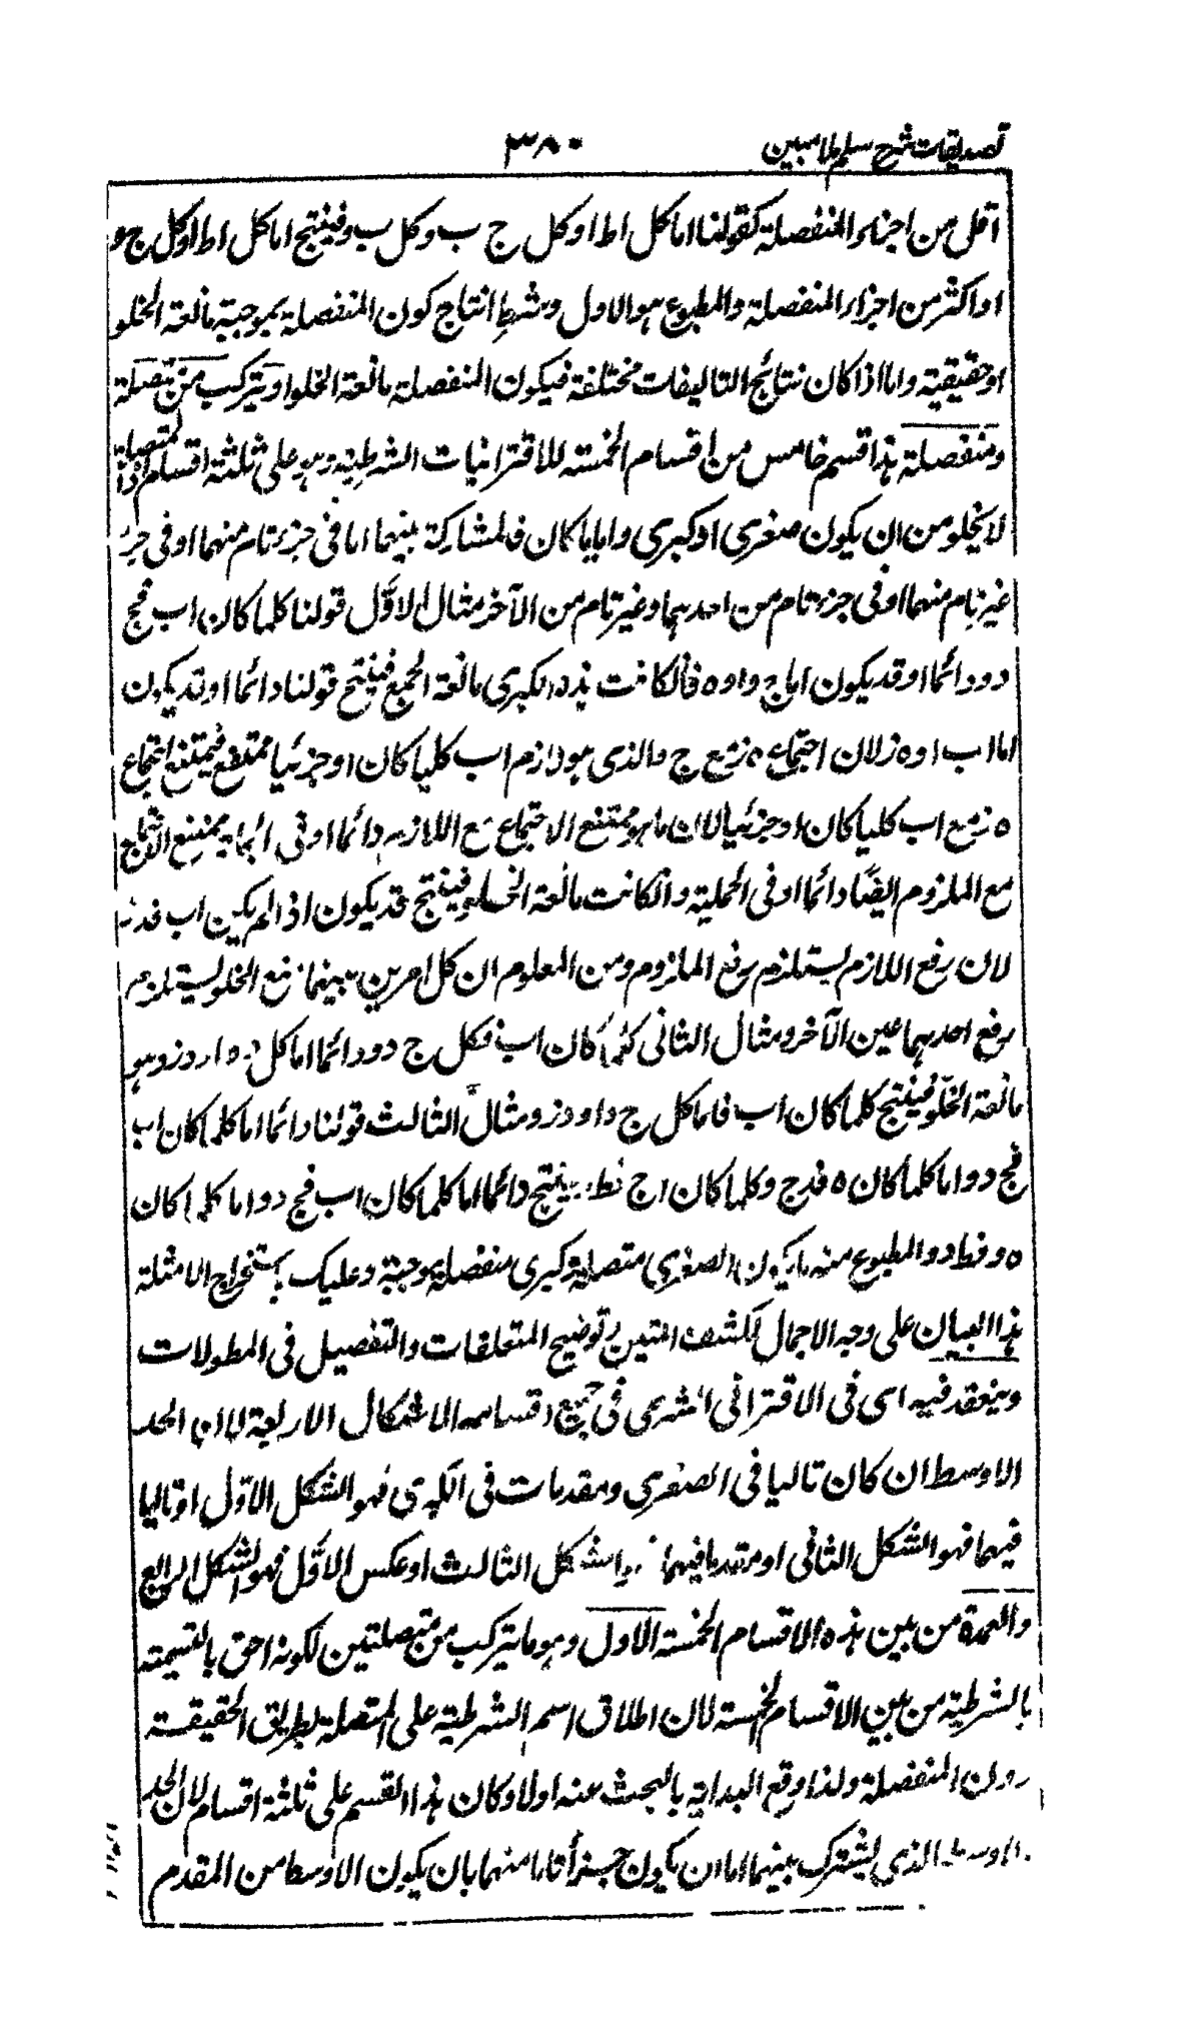 تصدیقات شرح سلم ملا مبین ۳۸۰
اقل من اجزاء المنفصلة کقولنا اما کل ا ط او کل ج ب وکل ب و فینتج اما کل ا ط او کل ج و
او اکثر من اجزاء المنفصلة والمطبوع هو الاول وشرط انتاج کون المنفصلة موجبة مانعة الخلو
او حقیقیة واما اذا کان نتائج التالیفات مختلفة فیکون المنفصلة مانعة الخلو او یترکب من متصلة
ومنفصلة هذا قسم خامس من اقسام الخمسة للاقترانیات الشرطیة وهو علی ثلثة اقسام اذ المتصلة
لا یخلو من ان یکون صغری او کبری وایا ما کان فالمشارکة بینهما اما فی جزء تام منهما او فی جزء
غیر تام منهما او فی جزء تام من احدهما وغیر تام من الآخر مثال الاوّل قولنا کلما کان اب فج
د ودائما او قد یکون اما ج د او ه ز فان کانت هذه الکبری مانعة الجمع فینتج قولنا دائما او قد یکون
اما اب او ه ز لان اجتماع ه ز مع ج د الذی هو لازم اب کلیا کان او جزئیا ممتنع فیمتنع اجتماع
ه ز مع اب کلیا کان او جزئیا لان ما هو ممتنع الاجتماع مع اللازم دائما او فی الجملة یمتنع اجتماع
مع الملزوم ایضًا دائما او فی الجملة وان کانت مانعة الخلو فینتج قد یکون اذا لم یکن اب فه ز
لان رفع اللازم یستلزم رفع الملزوم ومن المعلوم ان کل امرین بینهما منع الخلو یستلزم
رفع احدهما عین الآخر ومثال الثانی کلما کان اب فکل ج د ودائما اما کل د ه او د ز وهو
مانعة الخلو فینتج کلما کان اب فاما کل ج ه او د ز ومثال الثالث قولنا دائما اما کلما کان اب
فج د واما کلما کان ه فدج وکلما کان ا ج فط ینتج دائما اما کلما کان اب فج د واما کلما کان
ه و فط د والمطبوع منه ما یکون الصغری متصلة والکبری منفصلة موجبة وعلیک باستخراج الامثلة
هذا البیان علی وجه الاجمال لکشف المتین وتوضیح المتعلقات والتفصیل فی المطولات
وینعقد فیه ای فی الاقترانی الشرطی فی جمیع اقسامه الاشکال الاربعة لان الحد
الاوسط ان کان تالیا فی الصغری ومقدمات فی الکبری فهو الشکل الاوّل او تالیا
فیهما فهو الشکل الثانی او مقدما فیهما فهو الشکل الثالث او عکس الاوّل فهو الشکل الرابع
والعمدة من بین هذه الاقسام الخمسة الاول وهو ما یترکب من متصلتین لکونه احق بالتسمیة
بالشرطیة من بین الاقسام الخمسة لان اطلاق اسم الشرطیة علی المتصلة بطریق الحقیقة
دون المنفصلة ولذا وقع البدایة بالبحث عنه اولا وکان هذا القسم علی ثلثة اقسام لان الحد
الاوسط الذی یشترک بینهما اما ان یکون جزءاً تاما منهما بان یکون الاوسط من المقدم